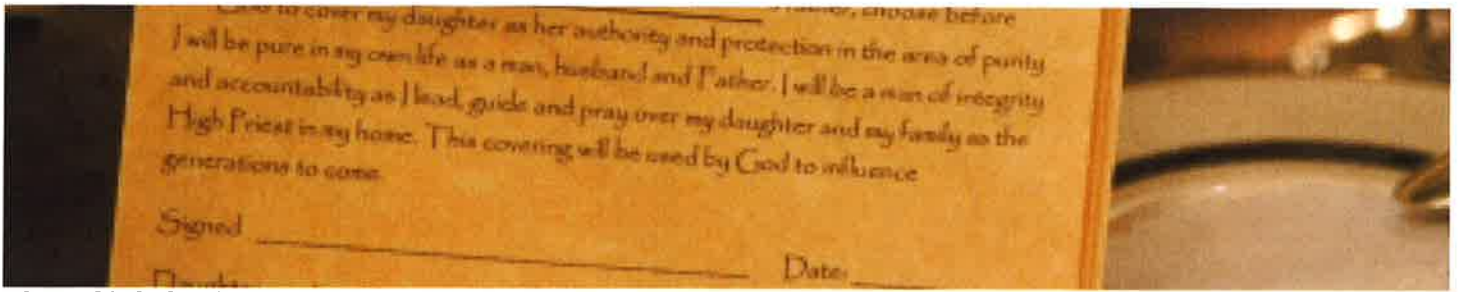 God to cover my daughter as her authority and protection in the area of purity
Father, choose before
I will be pure in my own life as a man, husband and Father. I will be a man of integrity
and accountability as I lead, guide and pray over my daughter and my family as the
High Priest in my home. This covering will be used by God to influence
generations to come.
Signed
Date: